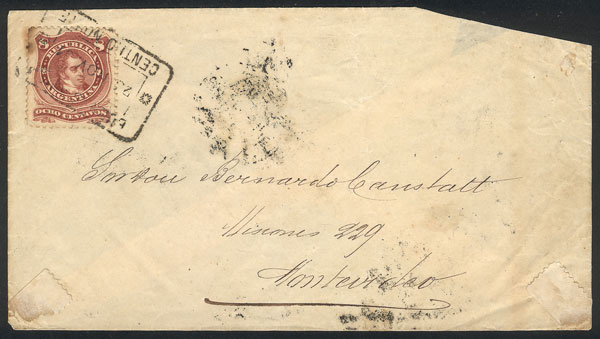 REPUBLICA
ARGENTINA
OCHO CENTAVOS
CENTRO NORTE
Bernardo Canstatt
Misiones 229
Montevideo